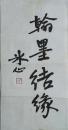 翰墨结缘
冰心